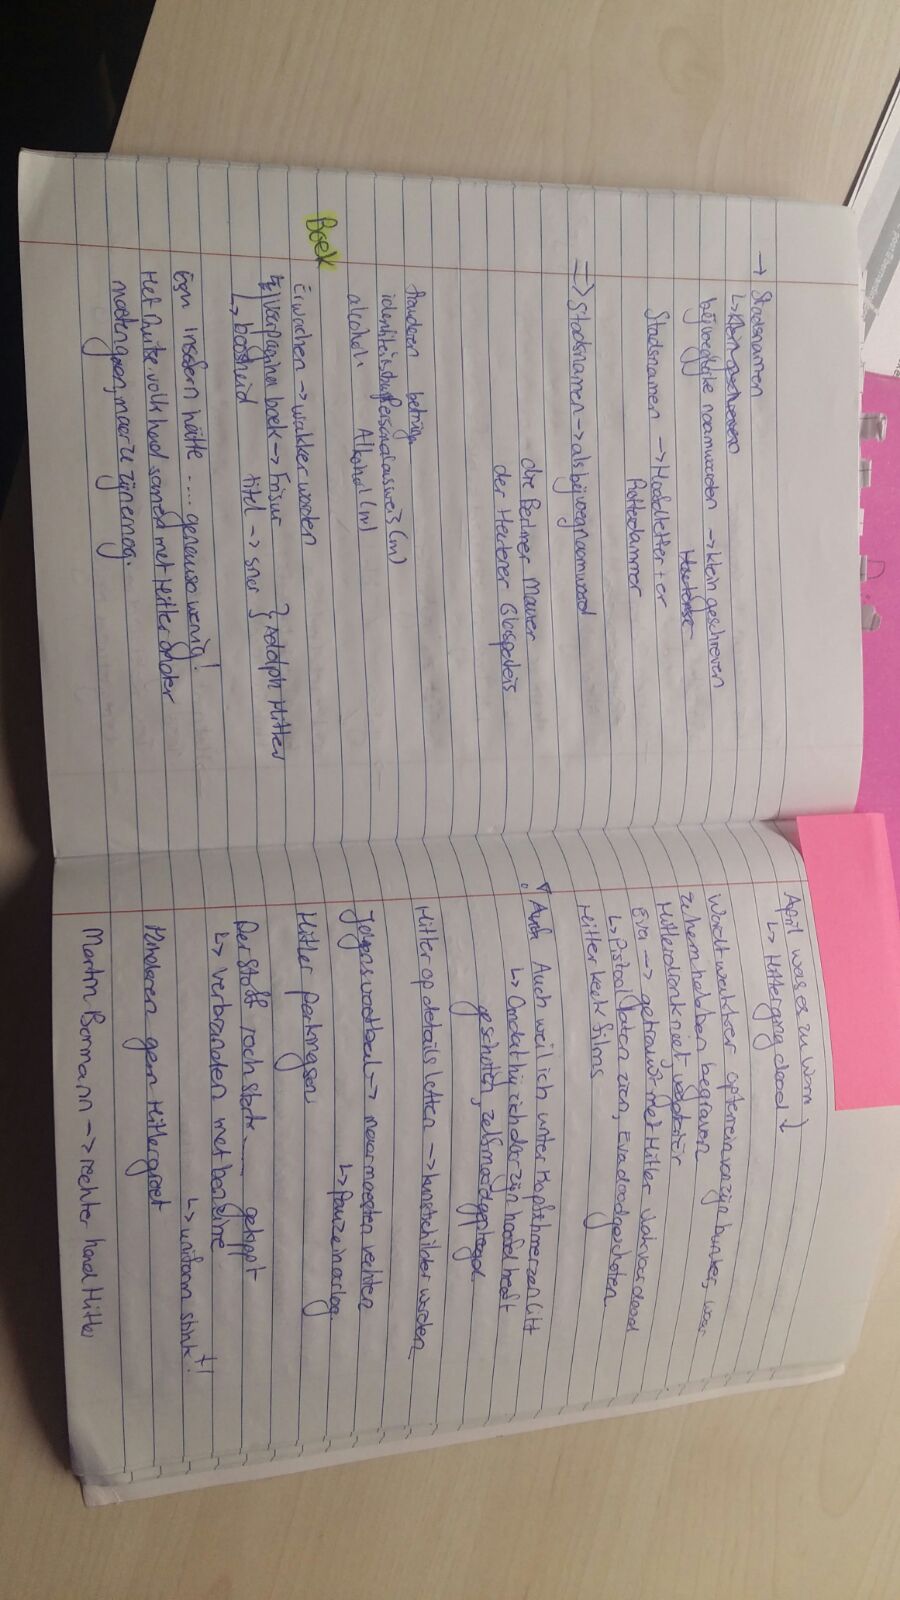 → Stadsnamen
↳ klein geschreven
bijvoeglijke naamwoorden → klein geschreven
Heutense
Stadsnamen → Hoofdletter + er
Rotterdammer
⇒ Stadsnamen → als bijvoegnaamwoord
die Berliner Mauer
der Heutener Glaspaleis
frauderen betrüg
Personalausweis (m)
alcohol. Alkohol (m)
Boek
Erwachen → wakker worden
voorpagina boek → Frisur } Adolph Hitler
↳ boosheid titel → snor
insofern hätte .... genauso wenig!
Het Duitse volk had samen met Hitler onder
moeten gaan, maar ze zijn er nog.
April was es zu warm
↳ Hitler ging dood
Wordt wakker op terrein van zijn bunker, waar
ze hem hebben begraven
Hitler dronk niet, vegetariër
Eva → getrouwd met Hitler vlak voor dood
↳ Pistool laten zien, Eva doodgeschoten
Hitler keek films
! Auch Auch weil ich unter Kopfschmerzen litt
↳ Omdat hij zich door zijn hoofd heeft
geschoten, zelfmoord gepleegd.
Hitler op details letten → kunstschilder worden
Jongens voetbal → maar moesten vechten
↳ Pauze in oorlog.
Hitler Parkingson
Der Stoff roch stark .... getoppt
↳ verbranden met benzine
↳ uniform stinkt!
Kinderen geen Hitlergroet
Martin Bormann → rechter hand Hitler